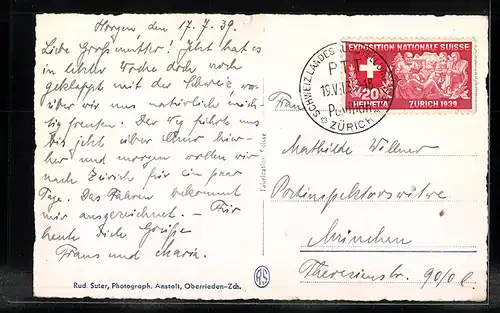 Horgen, den 17.7.39.
Liebe Großmutter! Jetzt hat es
in letzter Woche doch noch
geklappt mit der Schweiz, wo-
rüber wir uns natürlich mich-
tig freuten. Der Weg führte uns
bis jetzt über Ulm hier-
her und morgen wollen wir
nach Zürich für ein paar
Tage. Das Fahren bekommt
mir ausgezeichnet. – Für
heute Dich Grüße
Franz und Maria.
Rud. Suter, Photograph. Anstalt, Oberrieden-Zch.
Fabrication Suisse
SCHWEIZ. LANDES
P.T.T.
ZÜRICH
EXPOSITION NATIONALE SUISSE
20
HELVETIA ZÜRICH 1939
Frau
Mathilde Willner
Postinspektorswitwe
München
Theresienstr. 90/0 l.